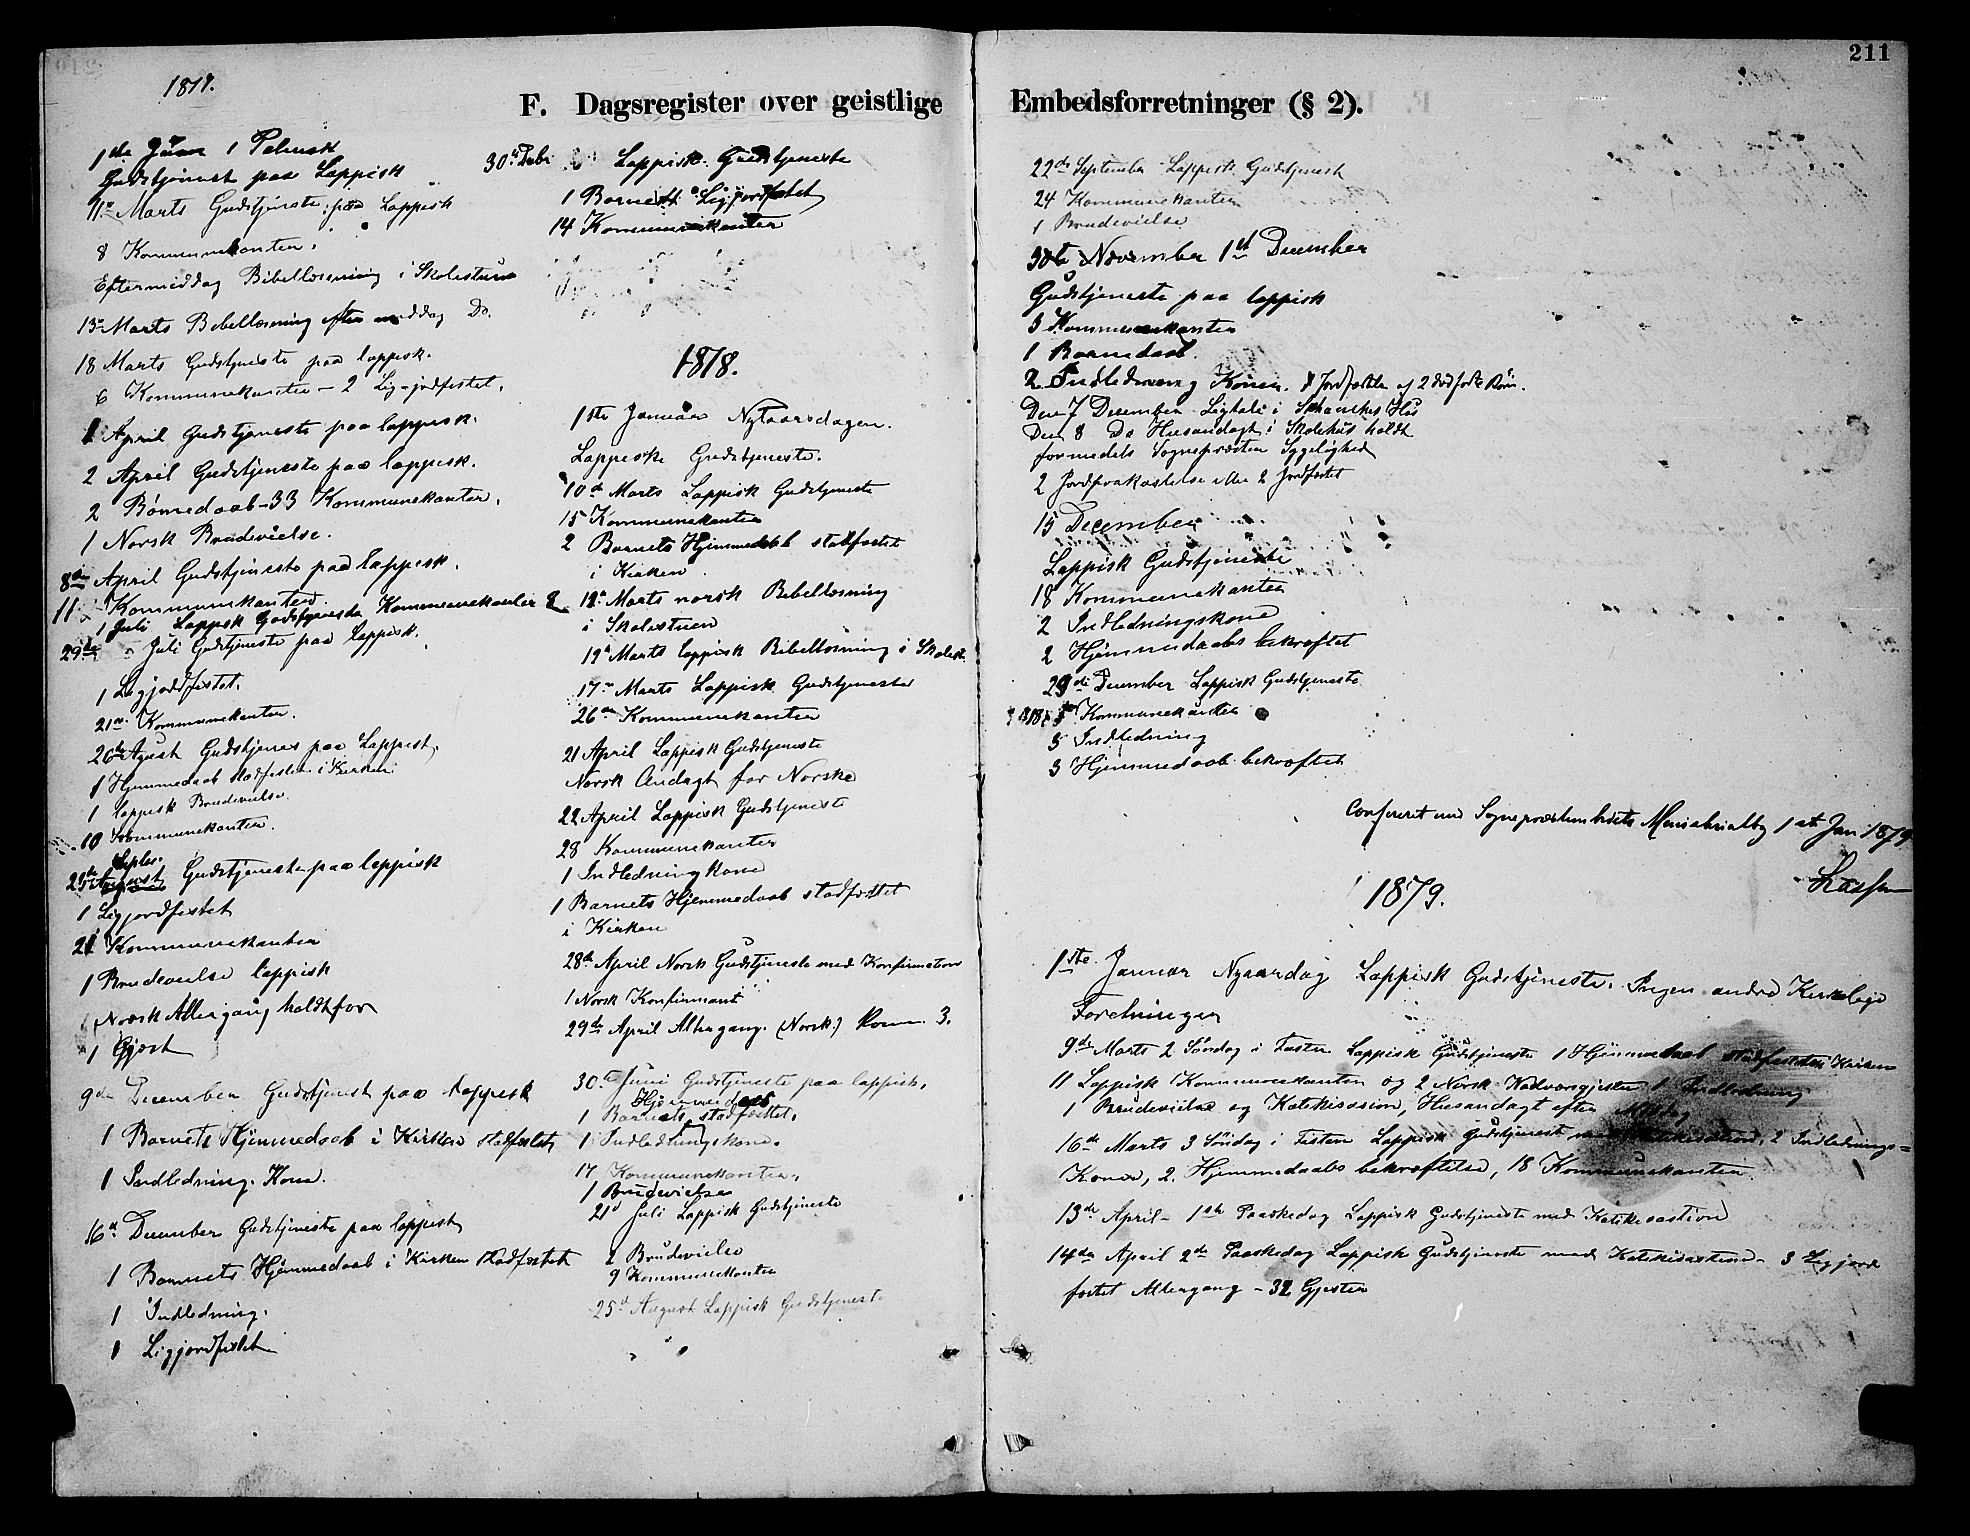 211
F. Dagsregister over geistlige Embedsforretninger (§ 2).
1ste
Gudstjenest paa Lappisk
11te Marts Gudstjenste paa Lappisk
8 Kommunekanter
Eftermeddag Bibellæsning i Skolestuen
13de Marts Bebellæsning efter meddag Do.
18 Marts Gudstjeneste paa lappisk.
6 Kommunekanter – 2 Lig-jodfestet.
1 April Gudstjeneste paa lappisk.
2 April Gudstjeneste paa lappisk.
2 Børnedaab – 33 Kommunekanter.
1 Norsk Brudevielse.
8de April Gudstjeneste paa lappisk.
11 Kommunekanter
1 Juli Lappisk Gudstjeneste Kommunekanter 2
29de Juli Gudstjeneste paa lappisk.
1 Ligjordfestet.
21 Kommunekanter.
26de Agust Gudstjenes paa Lappisk,
1 Hjemmedaab stadfestet i Kirken
1 lappisk Brudevielse.
10 Kommunekanter.
Septer.
23de August Gudstjeneste paa lappisk
1 Ligjordfestet
21 Kommunekanter
1 Brudevielse lappisk
1 Norsk Altergang holdt for
1 Gjest
9de December Gudstjenest paa Lappisk
1 Barnets Hjemmedaab i Kirken stadfestet
1 Indledning. Kone.
16de December Gudstjeneste paa lappisk
1 Barnets Hjemmedaab i Kirken stadfestet
1 Indledning.
1 Ligjordfestet
30te Lappisk Gudstjeneste
1 Barnett Ligjordfestet
14 Kommunikanter
1878.
1ste Januar Nytaarsdagen.
Lappiske Gudstjeneste.
10de Marts Lappisk Gudstjeneste
15 Kommunekanter
2 Barnets Hjemmedaab stadfæstet
i Kirken
12te Marts norsk Bebellæsning
i Skolestuen
Marts lappisk Bibellæsning i Skolest.
17de Marts Lappisk Gudstjeneste
26 Kommunekanter
21 April Lappisk Gudstjeneste
Norsk Andagt for Norske
22 April Lappisk Gudstjeneste
28 Kommunekanter
1 Indledningkone
1 Barnets Hjemmedaab stadfæstet
i Kirken
28de April Norsk Gudstjeneste med Konfirmation
1 Norsk Konfirmant
29de April Altergang. (Norsk.) Kom. 3.
30te Juni Gudstjeneste paa lappisk.
Hjemmedaab
1 Barnets stadfæstet.
1 Indledningskone.
17 Kommunekanter.
1 Brudevielse
21 Juli Lappisk Gudstjeneste
2 Brudevielse
9 Kommunekanter
25de August Lappisk Gudstjeneste
22de September Lappisk Gudstjenest
24 Kommunekanter
1 Brudevielse
30te November 1st December
Gudstjeneste paa lappisk
3 Kommunekanter
1 Barnedaab.
2 Indledning Koner. Jordfæstelse af 2 dødfødte Børn.
Den 7 December Ligtale i Schanches Hus
Den 8 Do Husandagt i Skolehus holdt
formedels Sognepræsten Sygelighed
2 Jordpaakastelse eller 2 Jordfæstet
15 December
Lappisk Gudstjeneste
18 Kommunekanter
2 Indledningskone
2 Hjemmedaabs bekræftet
29de December Lappisk Gudstjeneste
Kommunekanter
3 Indledning
3 Hjemmedaab bekræftet
Confereret med Sogneprestembedets Ministerialbog 1st Jan 1879
1879.
1ste Januar Nyaardag Lappisk Gudstjeneste. Ingen andre Kirkelige
Foretninger
9de Marts 2 Søndag i Fasten Lappisk Gudstjeneste 1 Hjemmedaab stadfæstet i Kirken
11 Lappisk Kommunekanter og 2 Norsk Nadvorsgjester 1 Indledning
1 Brudevielse og Katekisasion, Husandagt efter Middag
16de Marts 3 Søndag i Fasten Lappisk Gudstjenest med Katekisation, 2 Indlednings-
Koner, 2. Hjemmedaabs bekræftelse, 18 Kommunekanter.
13de April – 1ste Paaskedag Lappisk Gudstjeneste med Katekisastion
14de April 2de Paaskedag Lappisk Gudstjeneste med Katekisastion – 3 Ligjord
festet Altergang – 32 Gjester